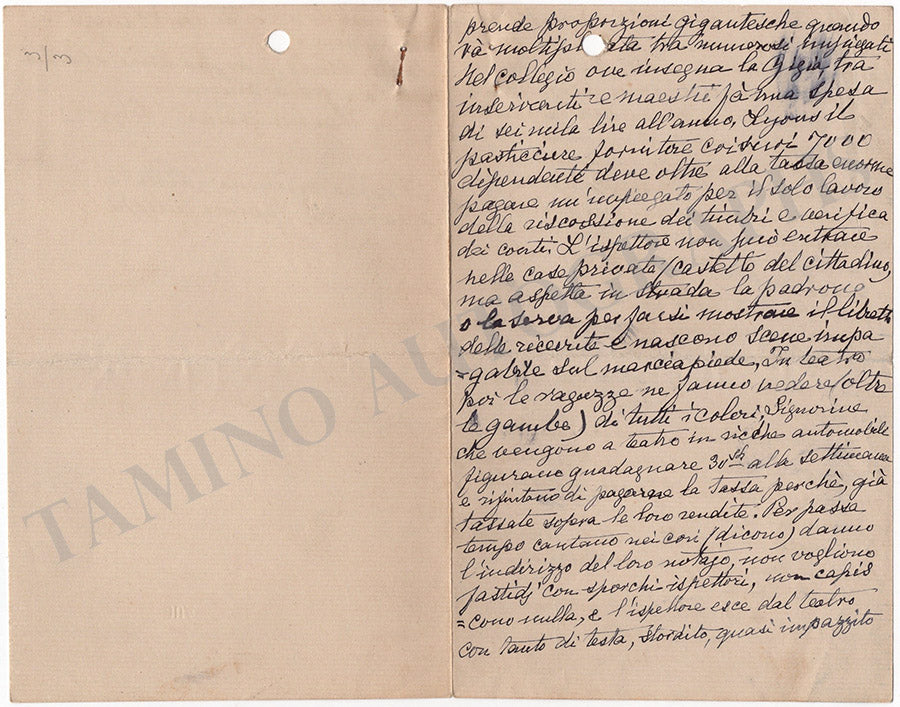 3/3
prende proporzioni gigantesche quando
và moltiplicata tra numerosi impiegati
Nel collegio ove insegna la Gigia, tra
inservienti e maestri fà una spesa
di sei mila lire all'anno, Lyons il
pasticciere fornitore coi suoi 7000
dipendenti deve oltre alla tassa enorme
pagare un'impiegato per il solo lavoro
della riscossione dei timbri e verifica
dei conti. L'ispettore non può entrare
nelle case private (castello del cittadino,
ma aspetta in strada la padrona
o la serva per farsi mostrare il libretto
delle ricevute e nascono scene impa
=gabile sul marciapiede, In teatro
poi le ragazze ne fanno vedere (oltre
le gambe) di tutti i colori, Signorine
che vengono a teatro in ricche automobile
figurano guadagnare 30sh alla settimana
e rifiutano di pagarne la tassa perchè, già
tassate sopra le loro rendite. Per passa
tempo cantano nei cori (dicono) danno
l'indirizzo del loro notajo, non vogliono
fastidj con sporchi ispettori, non capis
=cono nulla, e l'ispettore esce dal teatro
con tanto di testa, stordito, quasi impazzito
TAMINO AUTOGRAPHS